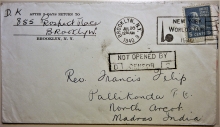 D K
AFTER 5 DAYS RETURN TO
885 Prospect Place
Brooklyn
BROOKLYN, N. Y.
BROOKLYN, N.Y.
1940
NEW
WORLD
NOT OPENED BY
CENSOR
Rev. Francis Filip
Pallikonda P.O.
North Arcot
Madras India